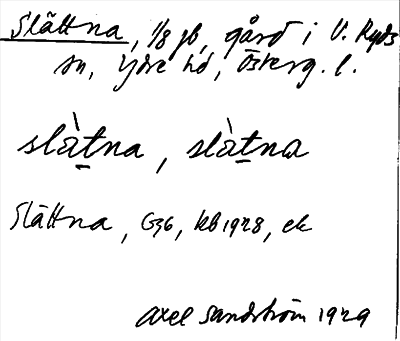 Slättna, 1/8 jb, gård i V. Ryds
sn, Ydre hd, Österg. l.
slàt̲na, slàt̲na
Slättna, G36, kb 1928, ek
Axel Sandström 1929